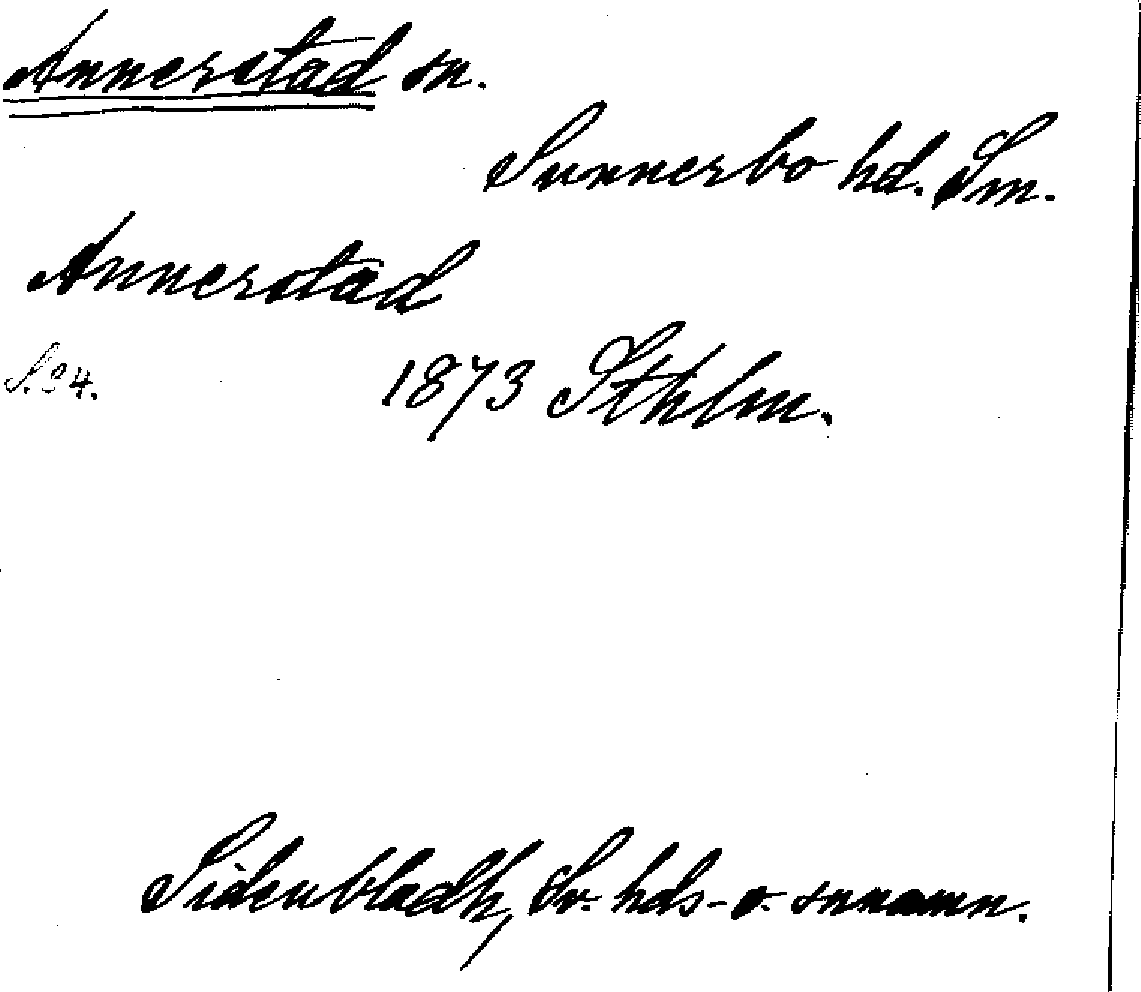 Annerstad sn.
Sunnerbo hd. Sm.
Annerstad
S. 34.
1873 Sthlm.
Sidenbladh, Sv. hds- o. snnamn.